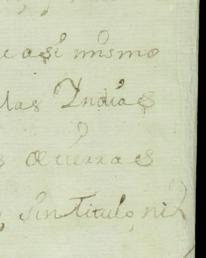 e así mismo
las Indias
s o tierras
sin Titulo, ni